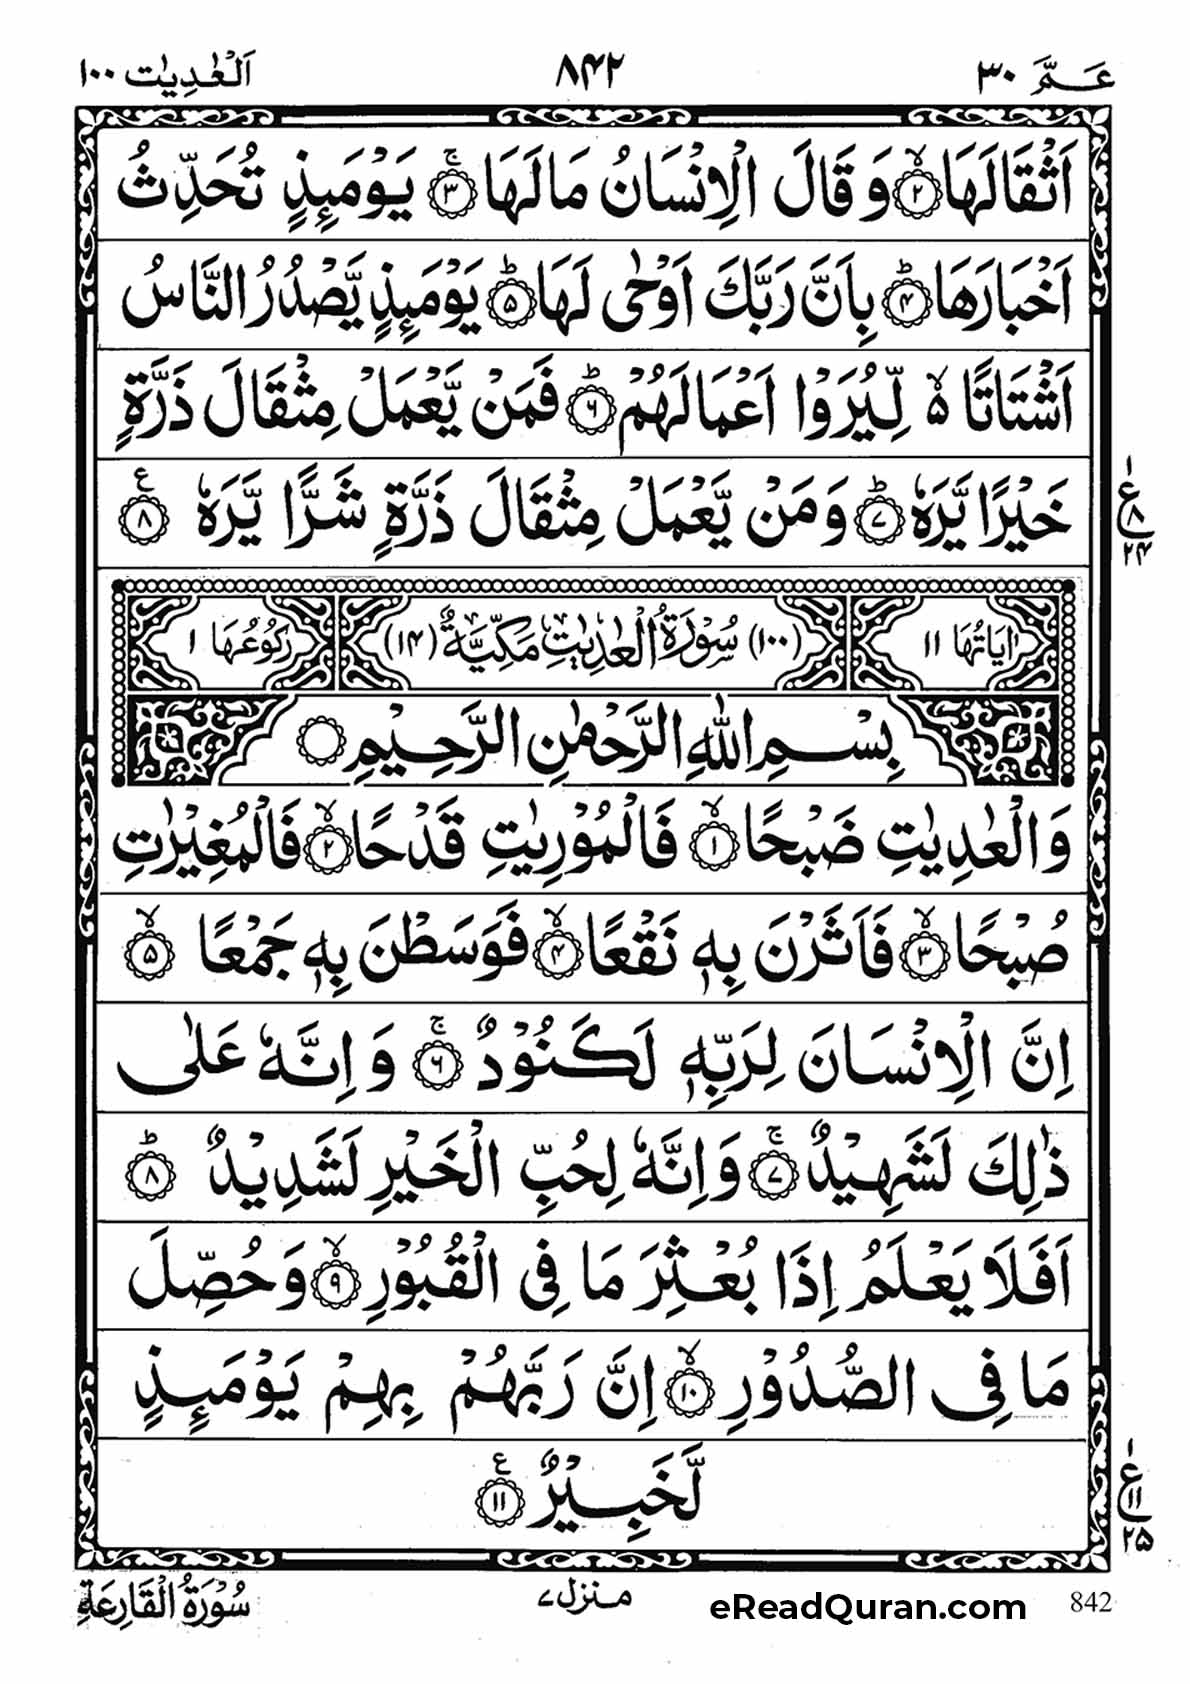 عَـمَّ ٣٠
٨٤٢
اَلْعٰدِيٰت ١٠٠
اَثْقَالَهَا ۙ﴿٢﴾ وَ قَالَ الْاِنْسَانُ مَا لَهَا ۚ﴿٣﴾ يَوْمَئِذٍ تُحَدِّثُ
اَخْبَارَهَا ؕ﴿٤﴾ بِاَنَّ رَبَّكَ اَوْحٰى لَهَا ؕ﴿٥﴾ يَوْمَئِذٍ يَّصْدُرُ النَّاسُ
اَشْتَاتًا ۙ۵ لِّيُرَوْا اَعْمَالَهُمْ ؕ﴿٦﴾ فَمَنْ يَّعْمَلْ مِثْقَالَ ذَرَّةٍ
خَيْرًا يَّرَهٗ ؕ﴿٧﴾ وَمَنْ يَّعْمَلْ مِثْقَالَ ذَرَّةٍ شَرًّا يَّرَهٗ ﴿٨﴾ع
ع
٨
٢٤
اٰيَاتُهَا ١١
(١٠٠) سُوْرَةُ الْعٰدِيٰتِ مَكِّيَّةٌ (١٤)
رُكُوْعُهَا ١
بِسْمِ اللهِ الرَّحْمٰنِ الرَّحِيْمِ
وَالْعٰدِيٰتِ ضَبْحًا ۙ﴿١﴾ فَالْمُوْرِيٰتِ قَدْحًا ۙ﴿٢﴾ فَالْمُغِيْرٰتِ
صُبْحًا ۙ﴿٣﴾ فَاَثَرْنَ بِهٖ نَقْعًا ۙ﴿٤﴾ فَوَسَطْنَ بِهٖ جَمْعًا ۙ﴿٥﴾
اِنَّ الْاِنْسَانَ لِرَبِّهٖ لَكَنُوْدٌ ۚ﴿٦﴾ وَ اِنَّهٗ عَلٰى
ذٰلِكَ لَشَهِيْدٌ ۚ﴿٧﴾ وَاِنَّهٗ لِحُبِّ الْخَيْرِ لَشَدِيْدٌ ؕ﴿٨﴾
اَفَلَا يَعْلَمُ اِذَا بُعْثِرَ مَا فِى الْقُبُوْرِ ۙ﴿٩﴾ وَحُصِّلَ
مَا فِى الصُّدُوْرِ ۙ﴿١٠﴾ اِنَّ رَبَّهُمْ بِهِمْ يَوْمَئِذٍ
لَّخَبِيْرٌ ﴿١١﴾ع
ع
١١
٢٥
842
eReadQuran.com
منزل ٧
سُوْرَةُ الْقَارِعَةِ